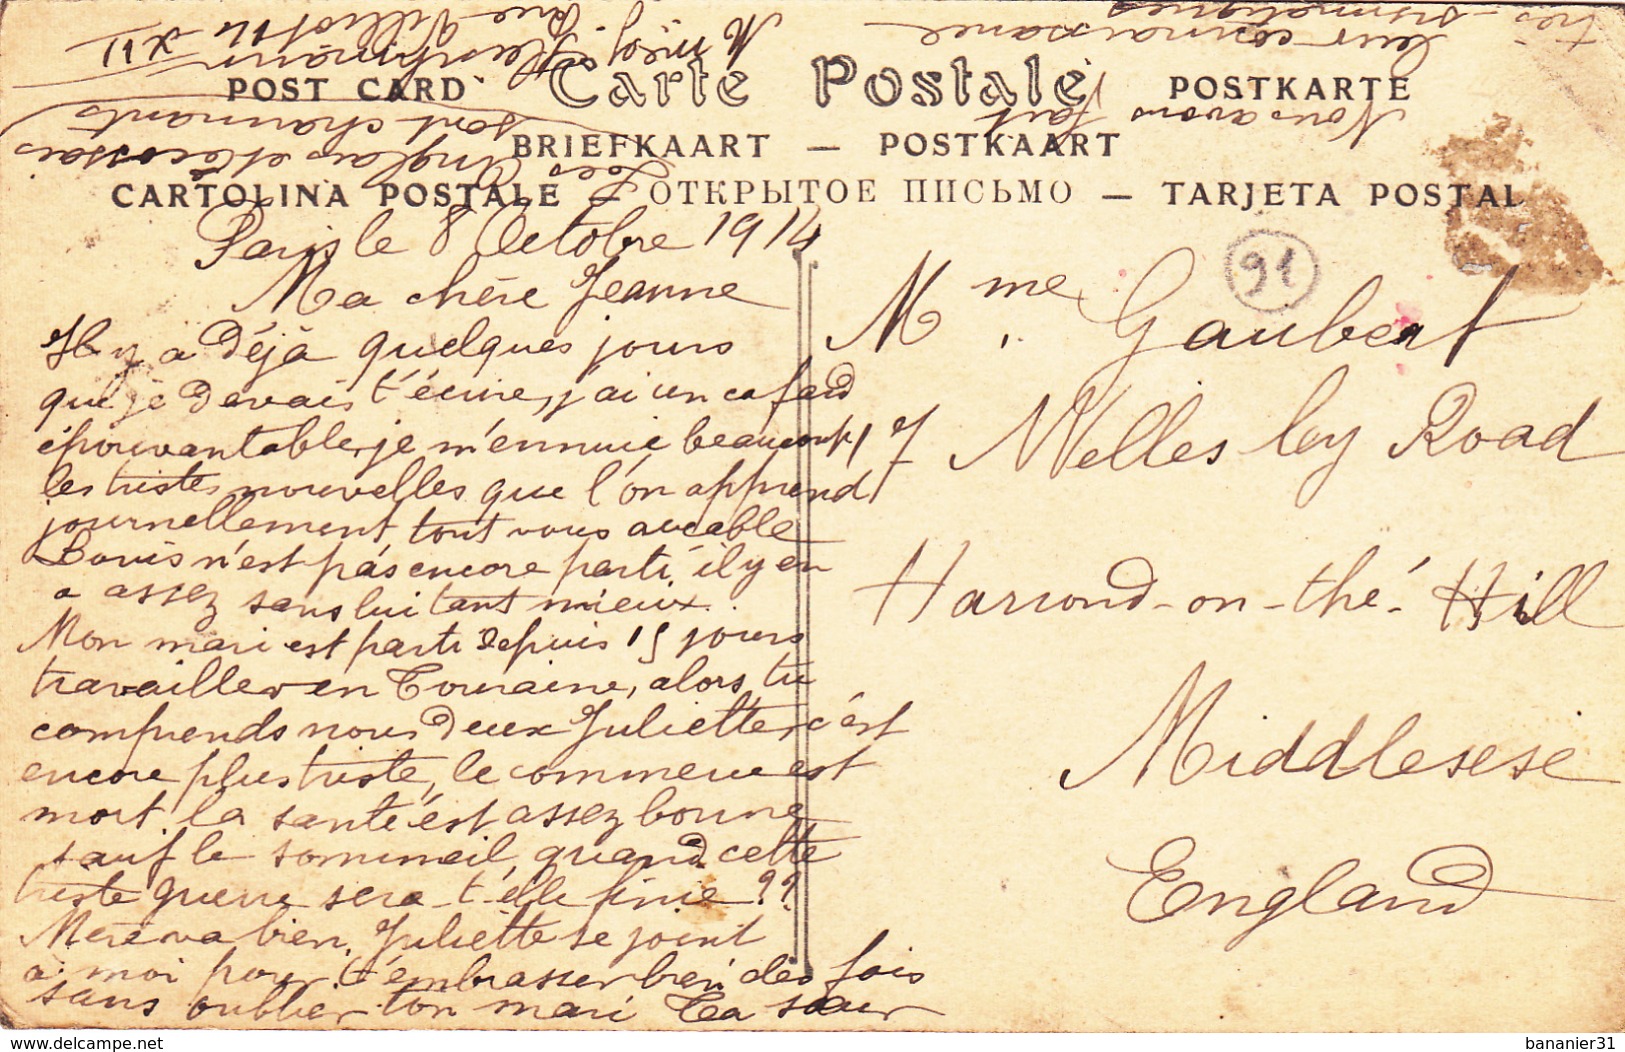 POST CARD Carte Postale POSTKARTE
BRIEFKAART — POSTKAART
CARTOLINA POSTALE — ОТКРЫТОЕ ПИСЬМО — TARJETA POSTAL
Paris le 8 Octobre 1914
Ma chère Jeanne
Il y a déjà quelques jours
que je devais t'écrire, j'ai un cafard
épouvantable, je m'ennuie beaucoup,
les tristes nouvelles que l'on apprend
journellement tout vous accable
Louis n'est pas encore parti, il y en
a assez sans lui tant mieux.
Mon mari est parti depuis 15 jours
travailler en Touraine, alors tu
comprends nous deux Juliette, c'est
encore plus triste, le commerce est
mort, la santé est assez bonne
sauf le sommeil, quand cette
triste guerre sera-t-elle finie ??
Mère va bien, Juliette se joint
à moi pour t'embrasser bien des fois
sans oublier ton mari Ta sœur
Mme Gaubert
7 Welles ley Road
Harrond-on-thé-Hill
Middlesese
England
91
Les Anglais et Écossais
sont charmants
Nous avons fait
leur connaissance
très
XII
bananier31